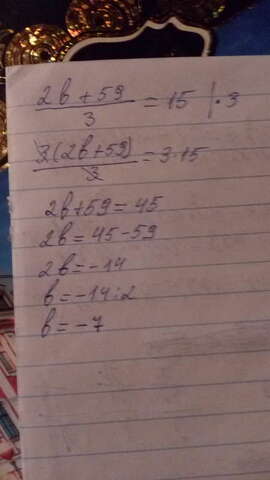 2b + 59 / 3 = 15 | · 3
3(2b+59) / 3 = 3·15
2b+59 = 45
2b = 45-59
2b = -14
b = -14:2
b = -7